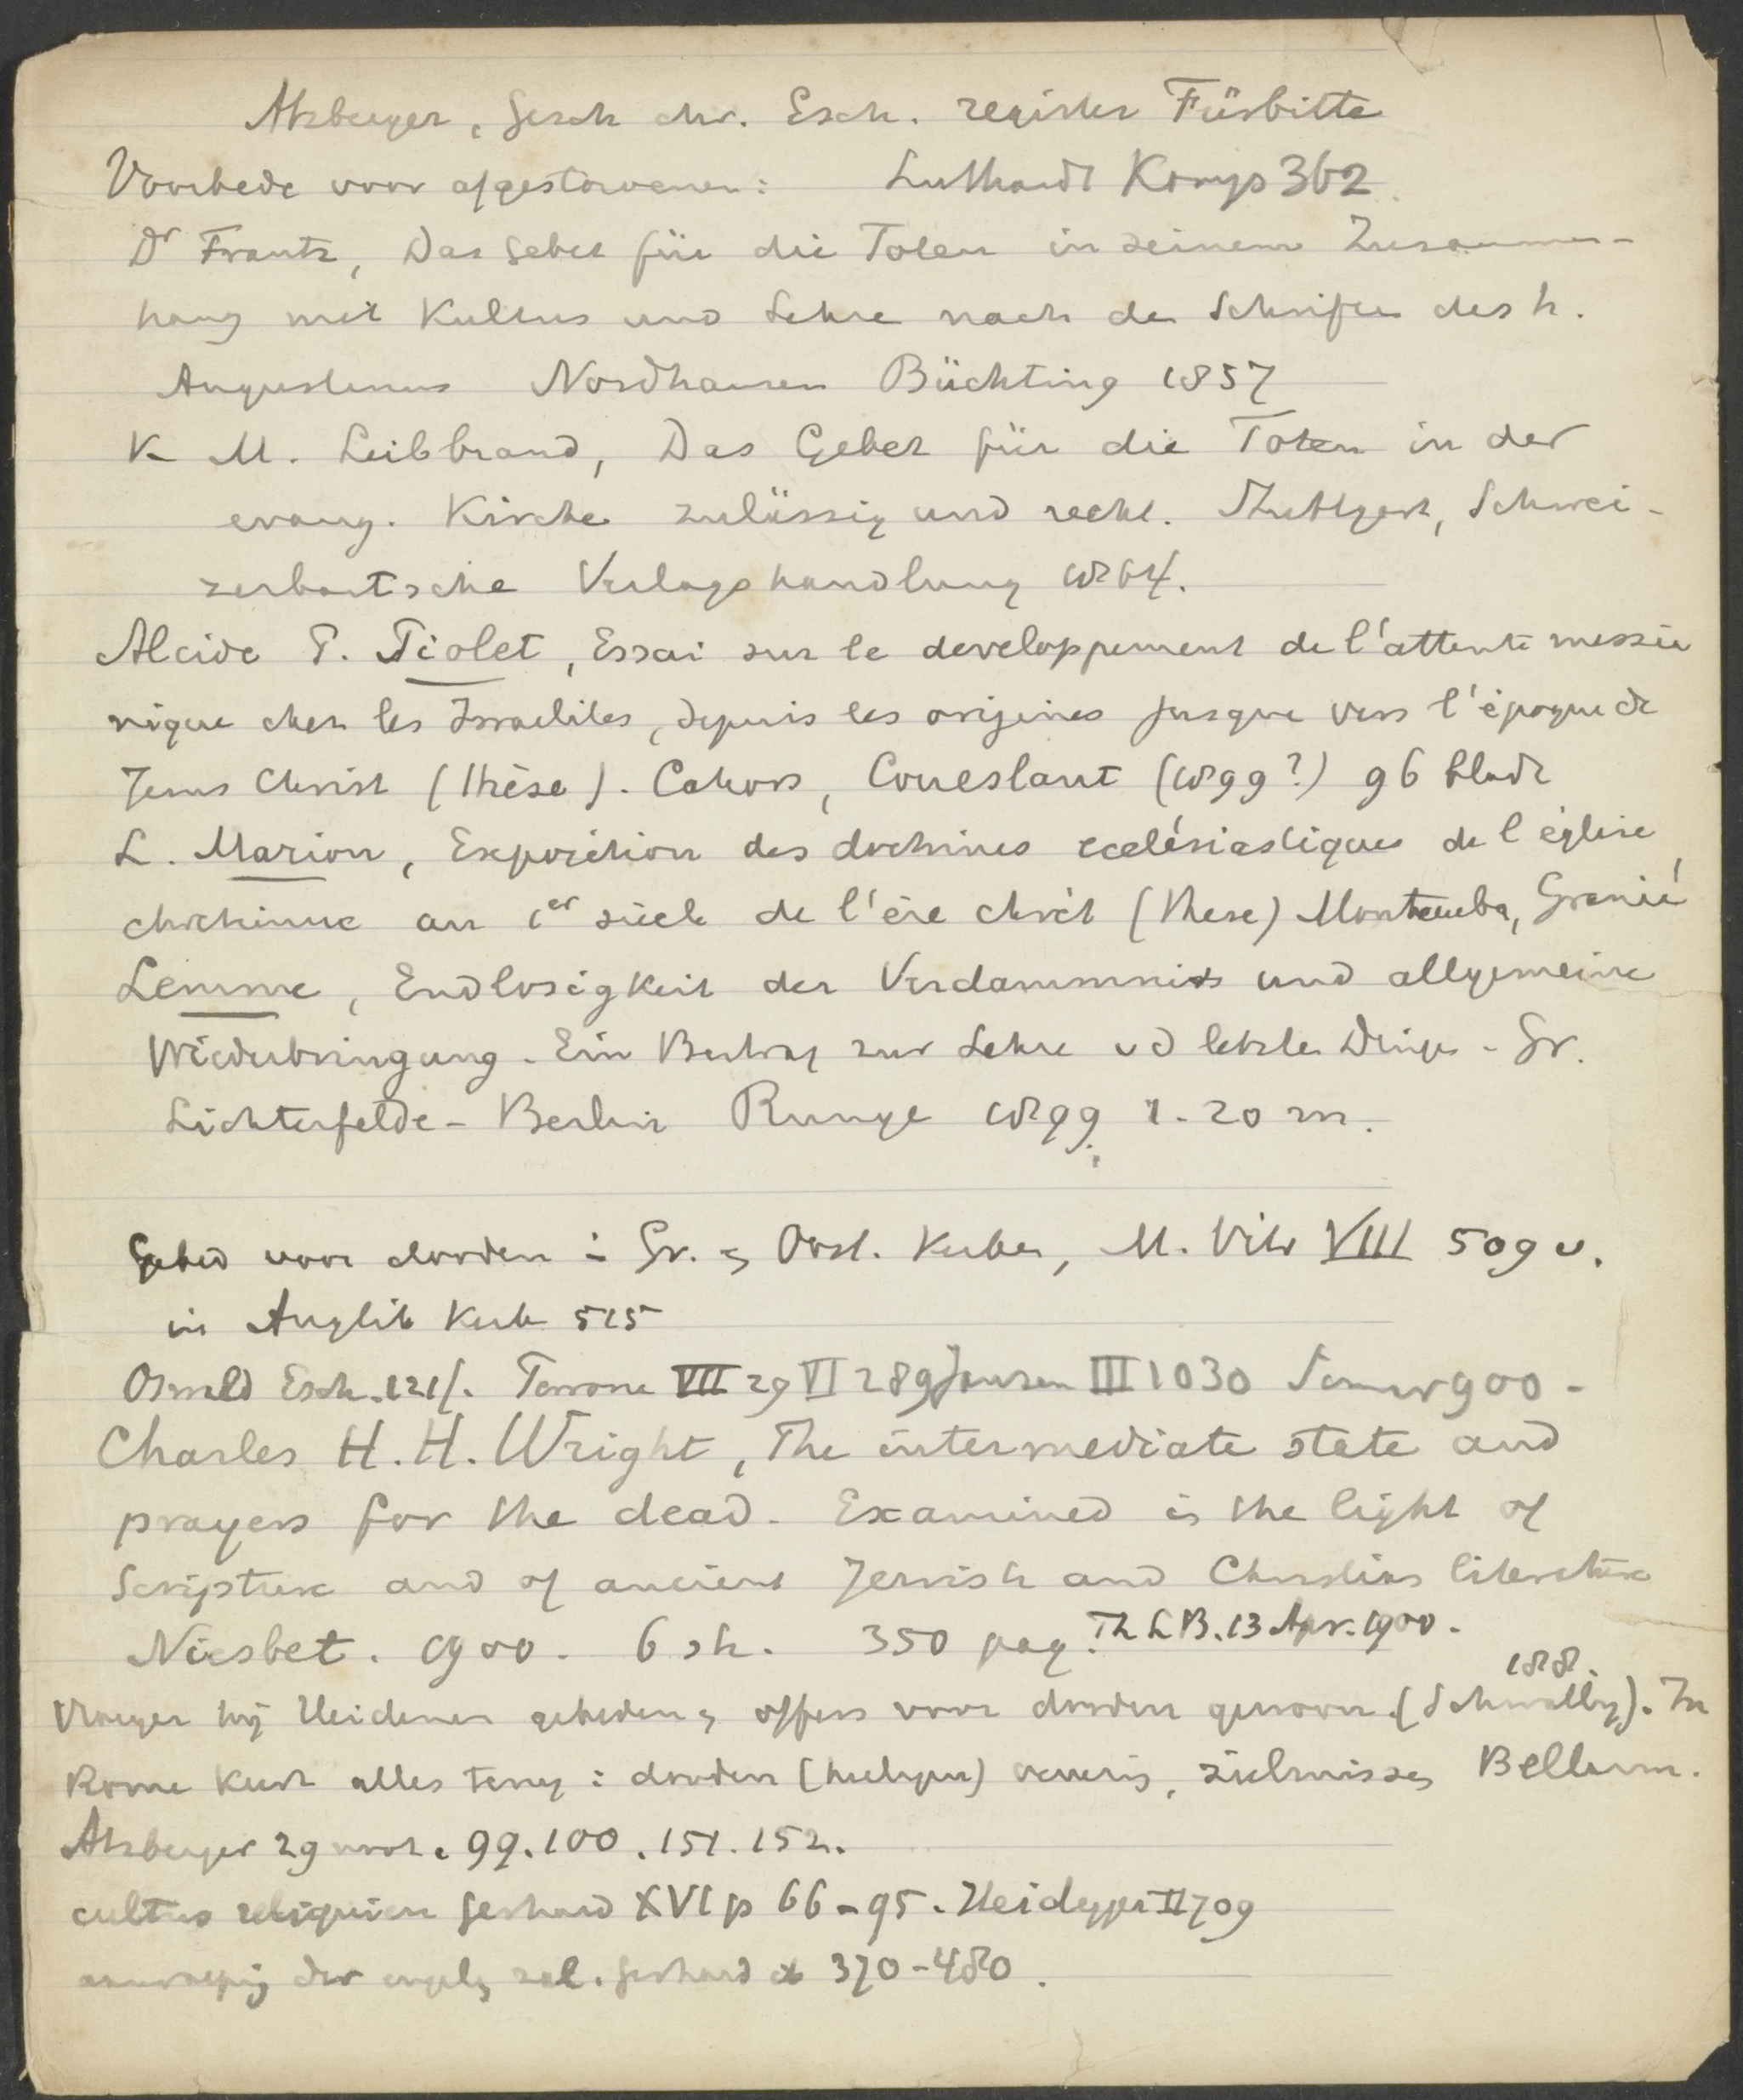 Atzberger, Gesch chr. Esch. register Fürbitte
Voorbede voor afgestorvenen: Luthardt Komp 362.
Dr Frantz, Das Gebet für die Toten in seinem Zusammen-
hang mit Kultus und Lehre nach de Schriften des h.
Augustinus Nordhausen Büchting 1857
K. M. Leibbrand, Das Gebet für die Toten in der
evang. Kirche zulässig und recht. Stuttgart, Schwei-
zerbartsche Verlagshandlung 1864.
Alcide T. Tiolet, Essai sur le developpement de l'attente messia
nique chez les Israelites, depuis les origines jusque vers l'époque de
Jesus Christ (thèse). Cahors, Coueslant (1899?) 96 bladz
L. Marion, Exposition des doctrines ecclésiastiques de l'église
chretienne au 1er siècle de l'ère chrét (These) Montauban, Granié
Lemme, Endlosigkeit der Verdammnis und allgemeine
Wiederbringung. Ein Beitrag zur Lehre v d letzten Dingen - Gr.
Lichterfelde - Berlin Runge 1899. 1.20 m.
Gebed voor dooden i Gr. Oost. Kerken, M. Vitr VIII 509 v.
in Anglik Kerk 515
Oswald Esch. 121f. VII 29 VI 289 Jansen III 1030 900 -
Charles H. H. Wright, The intermediate state and
prayers for the dead. Examined in the light of
Scripture and of ancient Jewish and Christian literature
Niesbet. 1900. 6 sh. 350 pag. Th L B. 13 Apr. 1900.
188.
Vroeger bij Heidenen gebeden offers voor dooden gewoon. (Schwally). In
Rome keert alles terug: dooden (heiligen) zielmissen Bellarm.
Atzberger 29 noot. 99. 100. 151. 152.
cultus reliquien Gerhard XVI p 66-95. Heidegger II 709
der engelen zal. Gerhard 370-480.